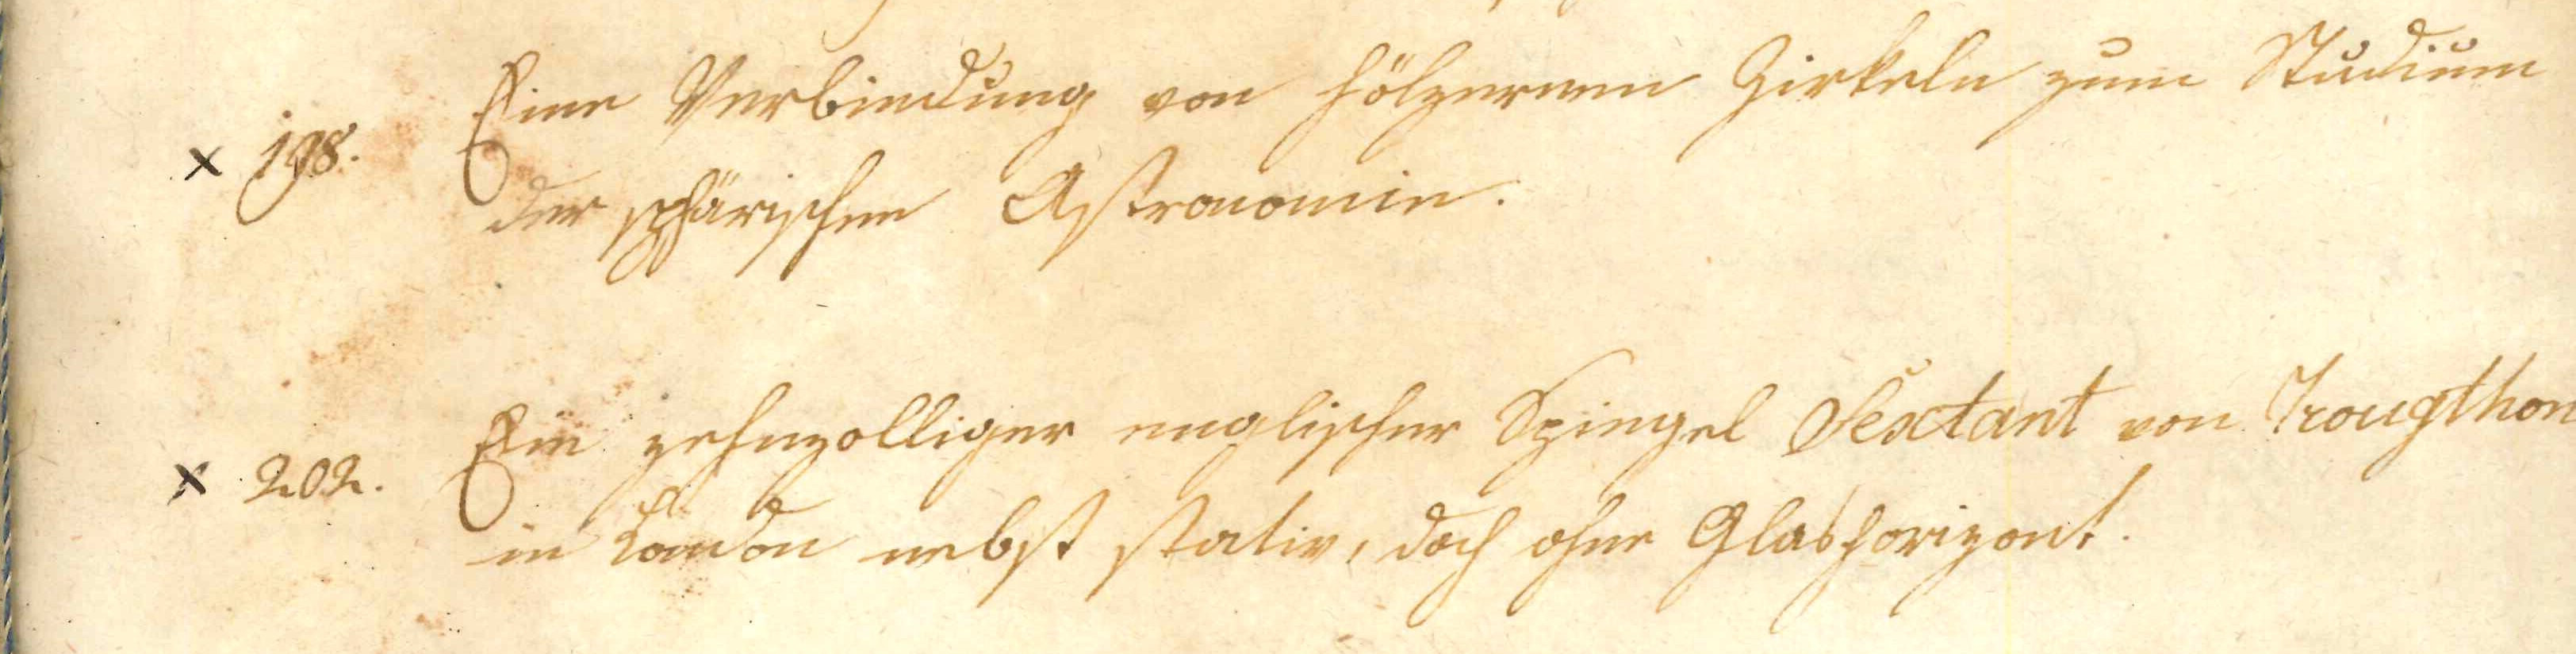 Eine Verbindung von hölzernen Zirkeln zum Studium
× 198.
der sphärischen Astronomie.
Ein zehnzolliger englischer Spiegel Sextant von Trougthon
× 202.
in London nebst stativ, doch ohne Glashorizont.